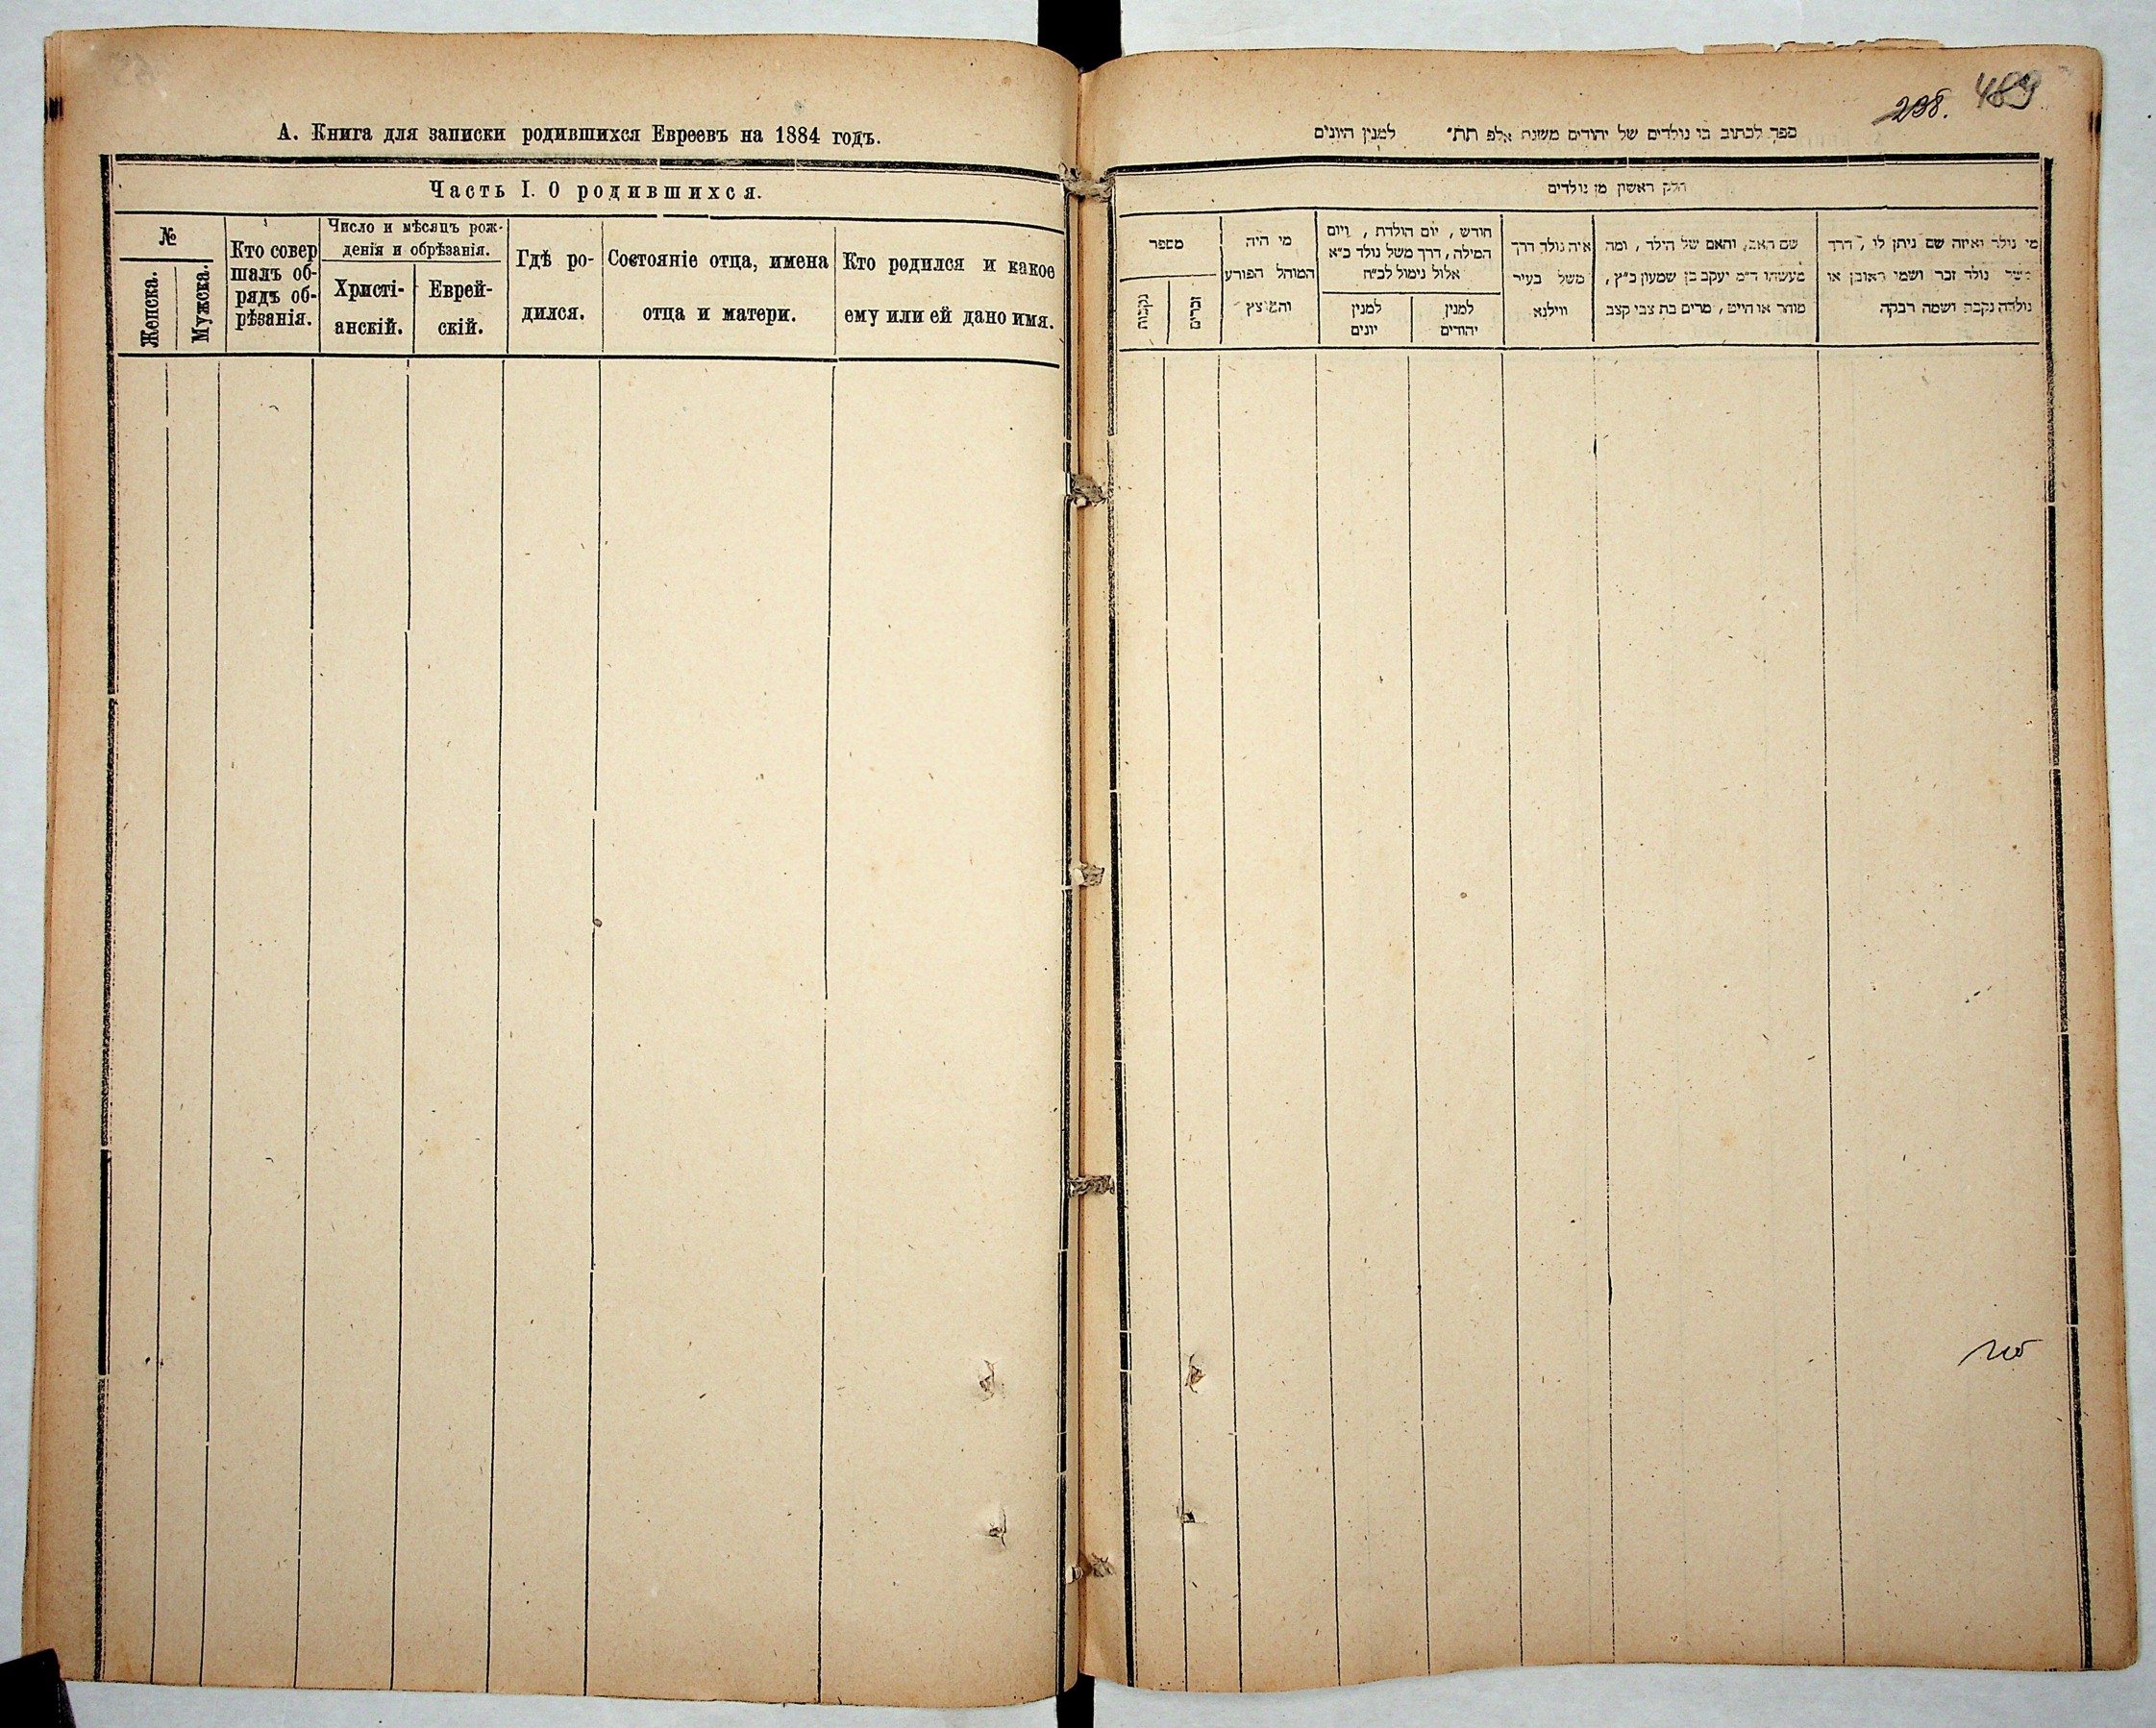 А. Книга для записки родившихся Евреевъ на 1884 годъ.
Часть I. О родившихся.
№
Женска.
Мужска.
Кто совер
шалъ об-
рядъ об-
рѣзанія.
Число и мѣсяцъ рож-
денія и обрѣзанія.
Христі-
анскій.
Еврей-
скій.
Гдѣ ро-
дился.
Состояніе отца, имена
отца и матери.
Кто родился и какое
ему или ей дано имя.
238. 489
ספר לכתוב בו נולדים של יהודים משנת אלפ תת״ למנין היונים
חלק ראשון מן נולדים
מי נולד ואיזה שם ניתן לו, דרך
משל נולד זכר ושמו ראובן או
נולדה נקבה ושמה רבקה
שם האב, והאם של הילד, ומה
מעשהו ד״מ יעקב בן שמעון כ״ץ,
מוהר או הייט, מרים בת צבי קצב
איה נולד דרך
משל בעיר
ווילנא
חודש, יום הולדת, ויום
המילה, דרך משל נולד כ״א
אלול נימול לכ״ח
למנין
יהודים
למנין
יונים
מי היה
המוהל הפורע
והמוצץ
מספר
זכרים
נקבות